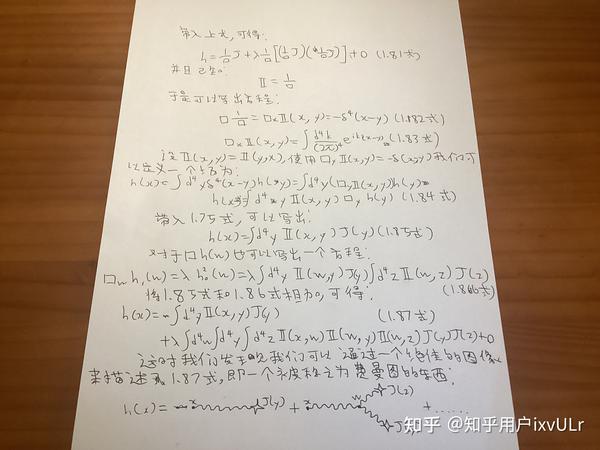 带入上式,可得:
h = 1/□ J + λ 1/□ [(1/□ J)(1/□ J)] + 0 (1.81式)
并且已知:
II = 1/□
于是可以写出方程:
□ 1/□ = □ₓ II(x, y) = -δ⁴(x-y) (1.82式)
□ₓ II(x, y) = ∫ d⁴k/(2π)⁴ e^{ik(x-y)} (1.83式)
设 II(x, y) = II(y, x), 使用 □ᵧ II(x, y) = -δ(x, y) 我们可
以定义一个 为:
h(x) = ∫ d⁴y δ⁴(x-y) h(y) = ∫ d⁴y (□ᵧ II(x, y)) h(y)
h(x) = ∫ d⁴y II(x, y) □ᵧ h(y) (1.84式)
带入 1.75式, 可以写出:
h(x) = ∫ d⁴y II(x, y) J(y) (1.85式)
对于 □ h(w) 也可以写出一个方程:
□w h₁(w) = λ h₀²(w) = λ ∫ d⁴y II(w, y) J(y) ∫ d⁴z II(w, z) J(z)
(1.86式)
将 1.85式和 1.86式相加,可得:
h(x) = ∫ d⁴y II(x, y) J(y) (1.87式)
+ λ ∫ d⁴w ∫ d⁴y ∫ d⁴z II(x, w) II(w, y) II(w, z) J(y) J(z) + 0
这时我们发现我们可以通过一个绝佳的图像
来描述 1.87式, 即一个 称之为费曼图的东西:
h(x) = x J(y) + x w J(z) J(y) + ......
知乎 @知乎用户ixvULr